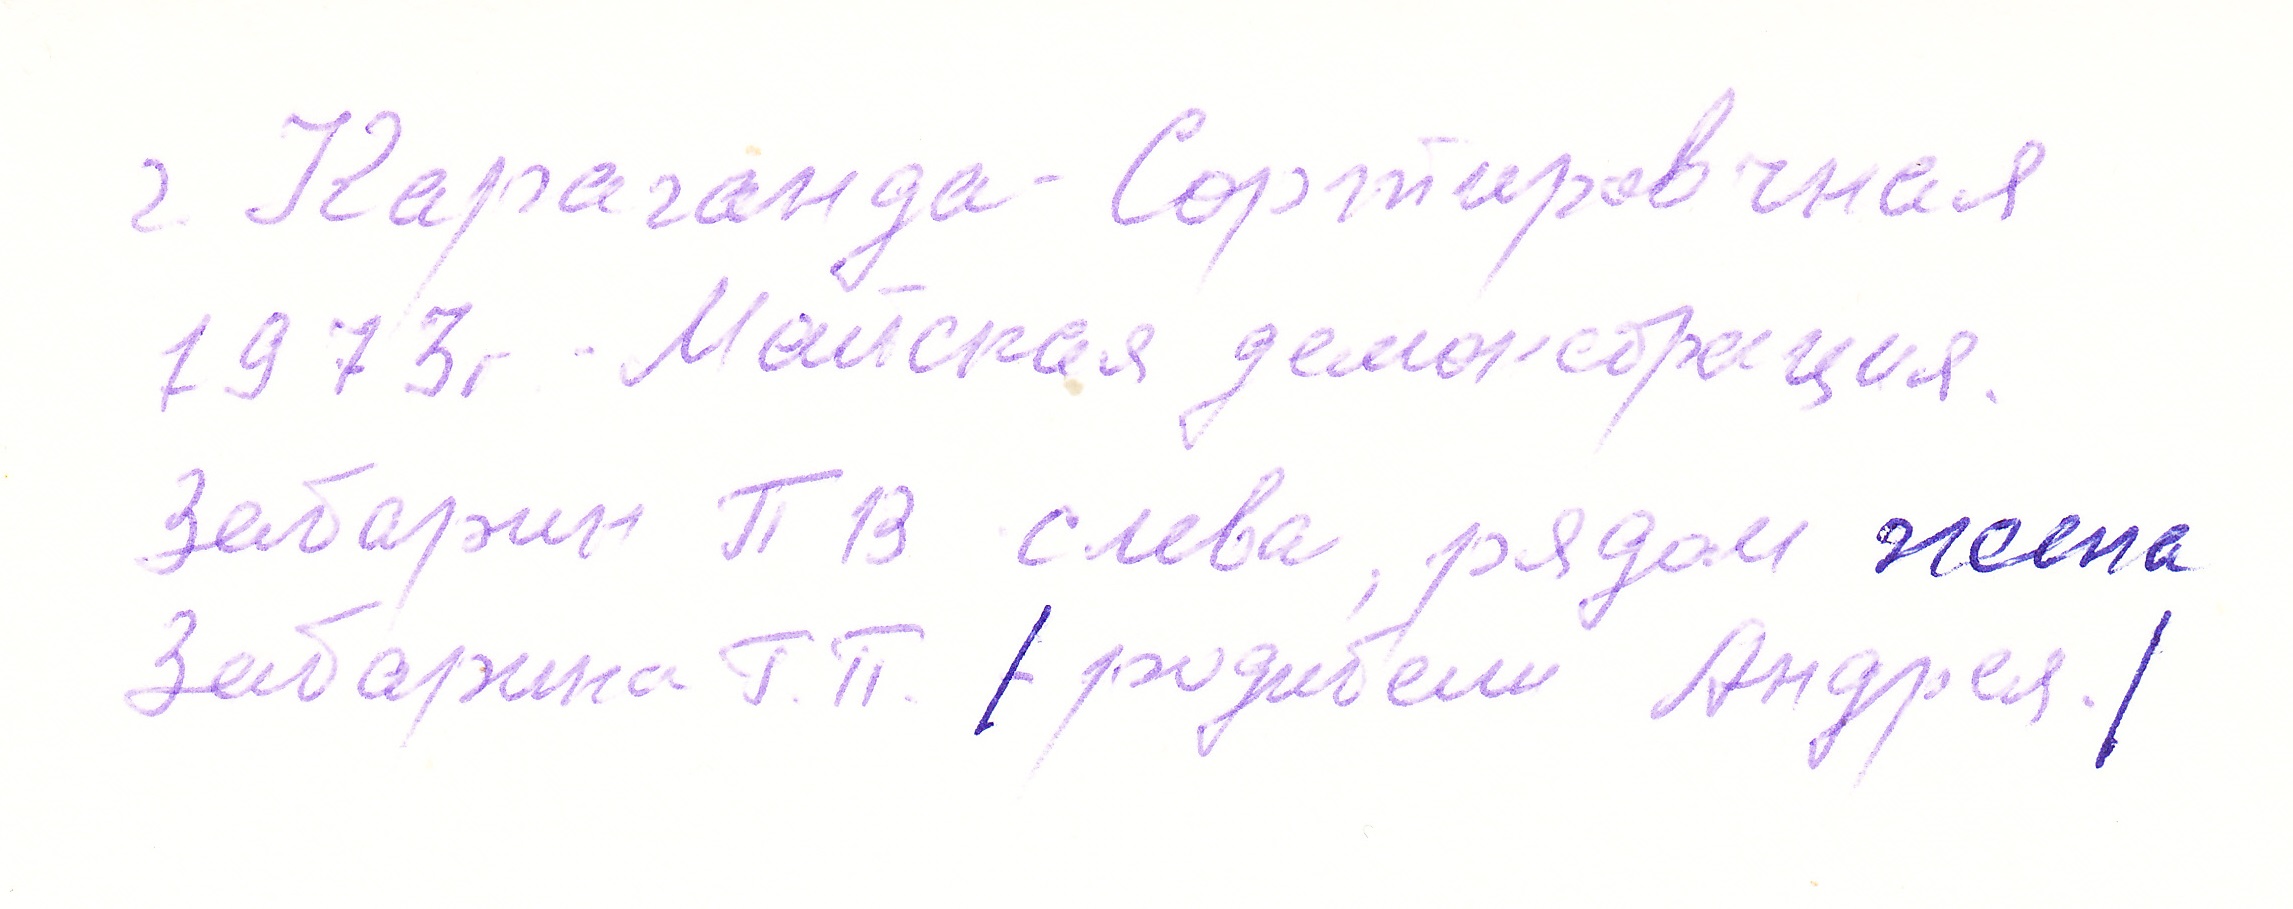 г Караганда-Сортировчная
1973г - Майская демонстрация.
Забарин П В слева, рядом жена
Забарина Т.П. / родители Андрея. /